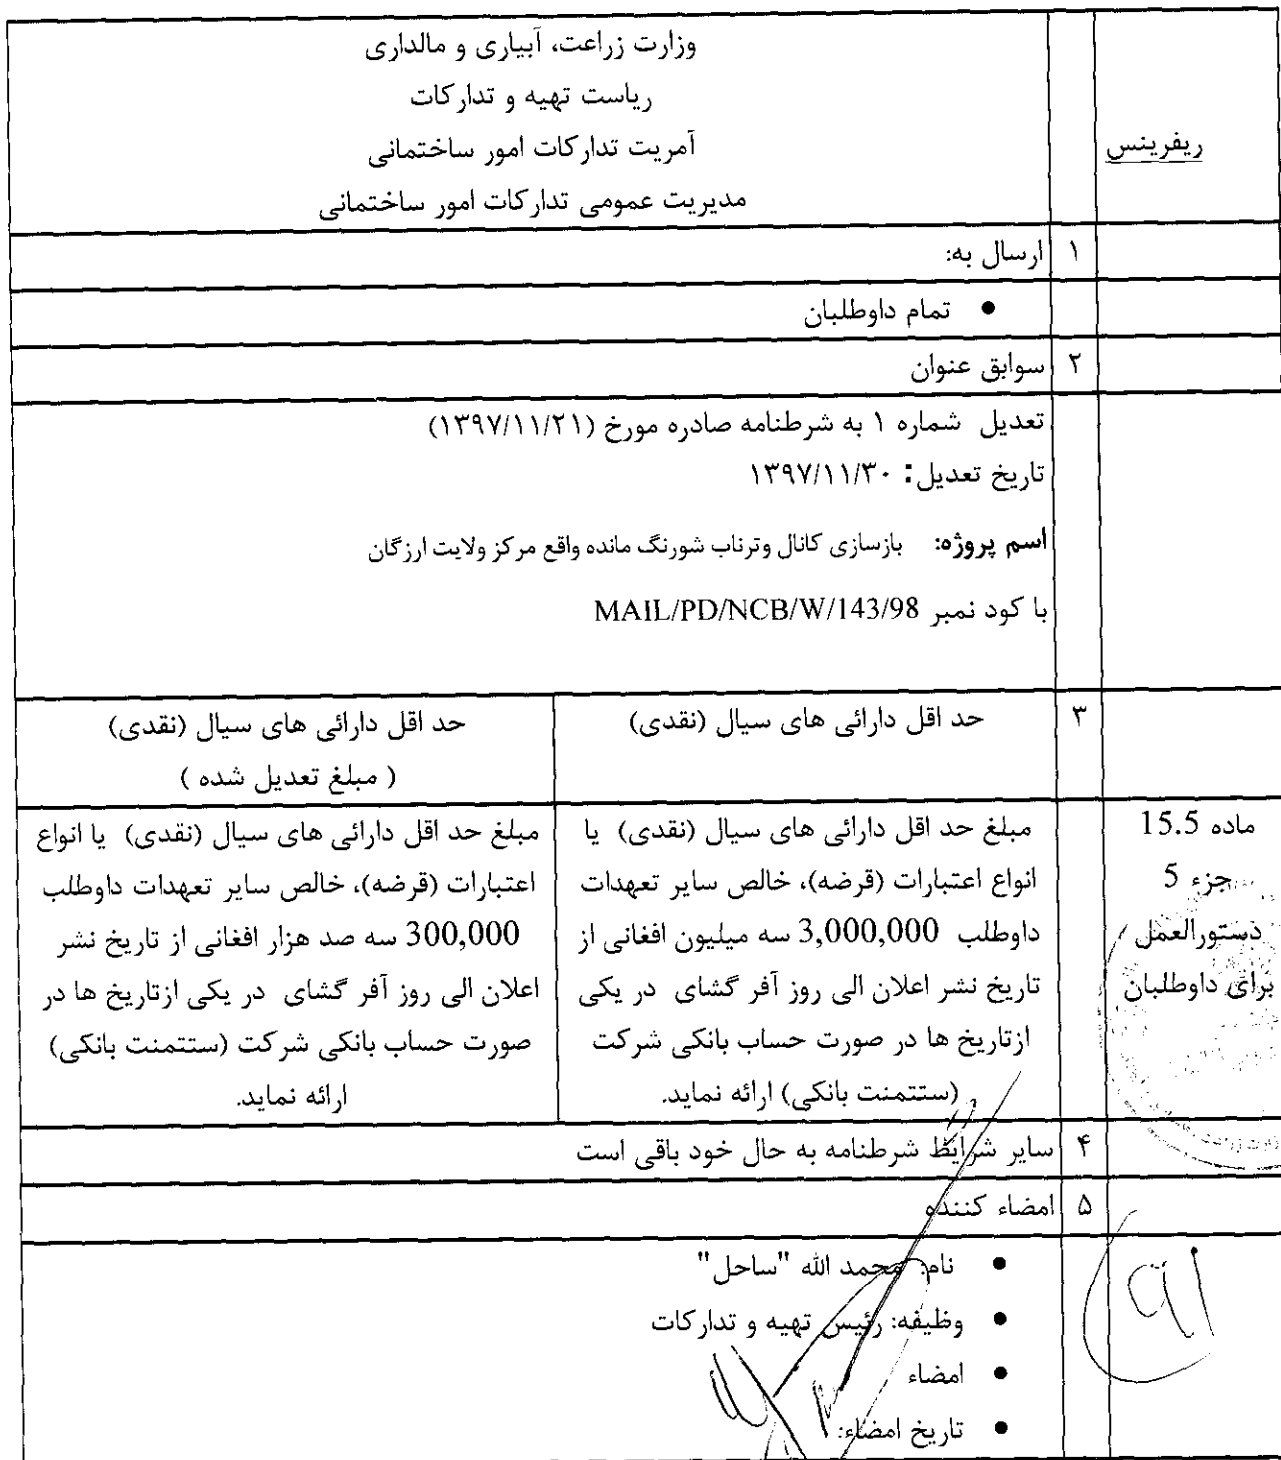 وزارت زراعت، آبیاری و مالداری
ریاست تهیه و تدارکات
آمریت تدارکات امور ساختمانی
مدیریت عمومی تدارکات امور ساختمانی
ریفرینس
۱ ارسال به:
• تمام داوطلبان
۲ سوابق عنوان
تعدیل شماره ۱ به شرطنامه صادره مورخ (۱۳۹۷/۱۱/۲۱)
تاریخ تعدیل: ۱۳۹۷/۱۱/۳۰
اسم پروژه: بازسازی کانال وترناب شورنگ مانده واقع مرکز ولایت ارزگان
با کود نمبر MAIL/PD/NCB/W/143/98
۳ حد اقل دارائی های سیال (نقدی)
حد اقل دارائی های سیال (نقدی)
( مبلغ تعدیل شده )
ماده 15.5
جزء 5
دستورالعمل
برای داوطلبان
مبلغ حد اقل دارائی های سیال (نقدی) یا
انواع اعتبارات (قرضه)، خالص سایر تعهدات
داوطلب 3,000,000 سه میلیون افغانی از
تاریخ نشر اعلان الی روز آفر گشای در یکی
ازتاریخ ها در صورت حساب بانکی شرکت
(ستتمنت بانکی) ارائه نماید.
مبلغ حد اقل دارائی های سیال (نقدی) یا انواع
اعتبارات (قرضه)، خالص سایر تعهدات داوطلب
300,000 سه صد هزار افغانی از تاریخ نشر
اعلان الی روز آفر گشای در یکی ازتاریخ ها در
صورت حساب بانکی شرکت (ستتمنت بانکی)
ارائه نماید.
۴ سایر شرایظ شرطنامه به حال خود باقی است
۵ امضاء کننده
• نام: محمد الله "ساحل"
• وظیفه: رئیس تهیه و تدارکات
• امضاء
• تاریخ امضاء: